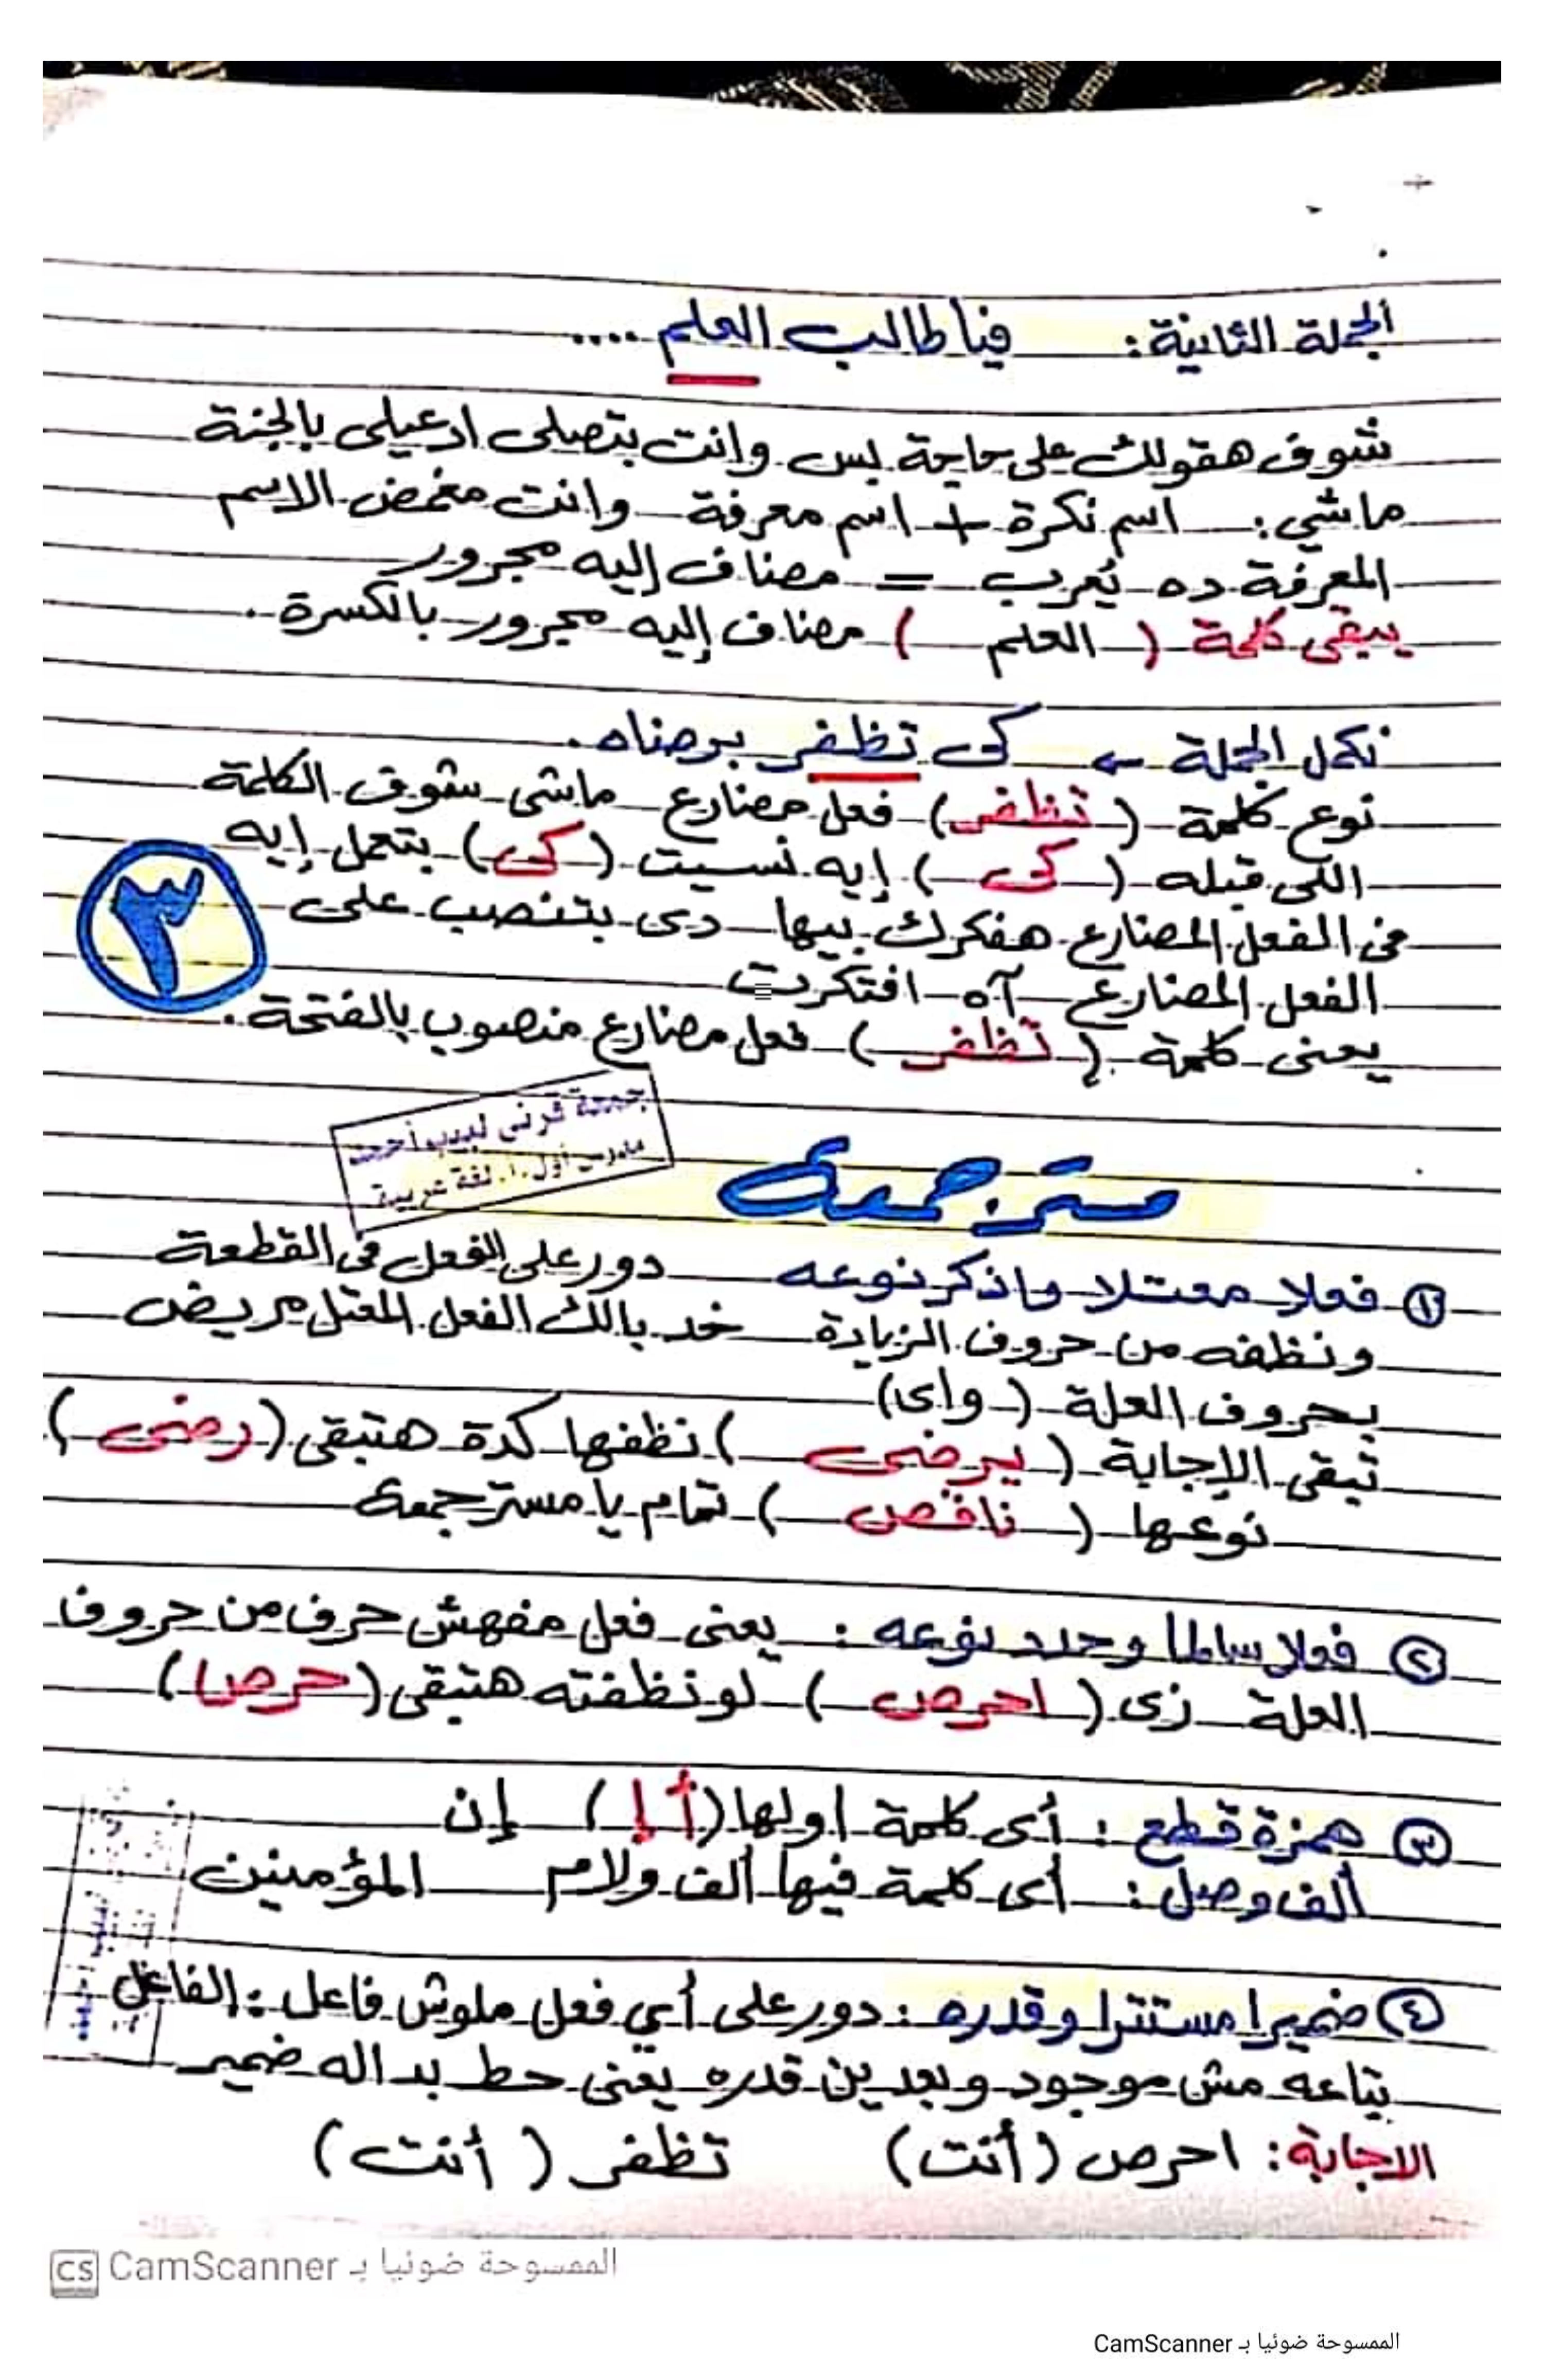 الجملة الثانية: فيا طالب العلم ....
شوف هقولك على حاجة بس وانت بتصلى ادعيلى بالجنة
ماشي: اسم نكرة + اسم معرفة وانت مغمض الاسم
المعرفة ده يُعرب = مضاف إليه مجرور
يبقى كلمة ( العلم ) مضاف إليه مجرور بالكسرة.
نكمل الجملة ← كى تظفر برضاه.
نوع كلمة (تظفر) فعل مضارع ماشى شوف الكلمة
اللى قبله (كى) إيه نسيت (كى) بتعمل إيه
فى الفعل المضارع هفكرك بيها دى بتنصب على
الفعل المضارع آه افتكرت
يعنى كلمة (تظفر) فعل مضارع منصوب بالفتحة.
٣
جمعة قرنى لبيب أحمد
مدرس أول أ. لغة عربية
مستر جمعة
١ فعلا معتلا واذكر نوعه دور على الفعل فى القطعة
ونظفه من حروف الزيادة خد بالك الفعل المعتل مريض
بحروف العلة (واى)
تبقى الإجابة (يرضى) نظفها كدة هتبقى (رضى)
نوعها (ناقص) تمام يا مستر جمعة
٢ فعلا سالما وحدد نوعه: يعنى فعل مفهش حرف من حروف
العلة زى (احرص) لو نظفته هتبقى (حرص)
٣ همزة قطع: أى كلمة اولها (أ إ) إن
ألف وصل: أى كلمة فيها ألف ولام المؤمنين
٤ ضميرا مستترا وقدره: دور على أي فعل ملوش فاعل: الفاعل
بتاعه مش موجود وبعدين قدره يعنى حط بداله ضمير
الاجابة: احرص (أنت) تظفر (أنت)
الممسوحة ضوئيا بـ CamScanner
الممسوحة ضوئيا بـ CamScanner